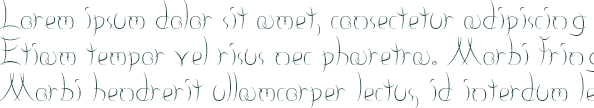 Lorem ipsum dolor sit amet, consectetur adipiscing
Etiam tempor vel risus nec pharetra. Morbi fring
Morbi hendrerit ullamcorper lectus, id interdum le